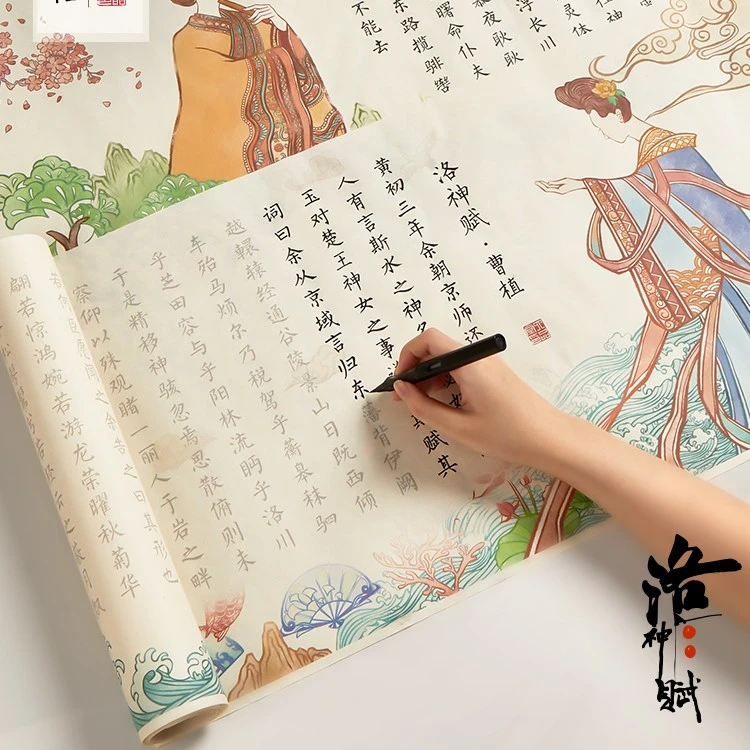 灵体
浮长川
夜耿耿
曙命仆夫
东路揽騑辔
不能去
洛神赋·曹植
黄初三年余朝京师还
人有言斯水之神名
玉对楚王神女之事 赋其
词曰余从京域言归东藩背伊阙
越轘辕经通谷陵景山日既西倾
车殆马烦尔乃税驾乎蘅皋秣驷
乎芝田容与乎阳林流眄乎洛川
于是精移神骇忽焉思散俯则未
察仰以殊观睹一丽人于岩之畔
之余告之曰其形也
翩若惊鸿婉若游龙荣曜秋菊华
洛神赋